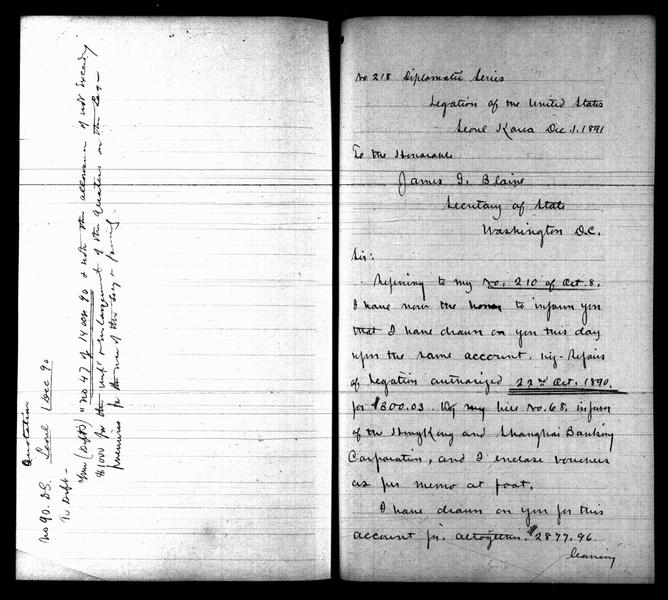 Quotation
No 90. D.S. Seoul 1 Dec 90
To Dept -
Your (Dept's) "No 47 of 14 Oct 90 & note the allowance of not exceedg
$1000 for the and enlargement of the Quarters on the Leg-
premises for the use of the Secy &
No. 218 Diplomatic Series
Legation of the United States
Seoul Korea Dec. 1. 1891
To the Honorable
James G. Blaine
Secretary of State
Washington D.C.
Sir:
Referring to my No. 210 of Oct. 8.
I have now the honor to inform you
that I have drawn on you this day
upon the same account, viz- Repairs
of Legation authorized 22nd Oct. 1890.
for $300.03. By my No. 68. in favor
of the HongKong and Shanghai Banking
Corporation, and I enclose vouchers
as per memo at foot.
I have drawn on you for this
account for altogether $2877.96.
leaving